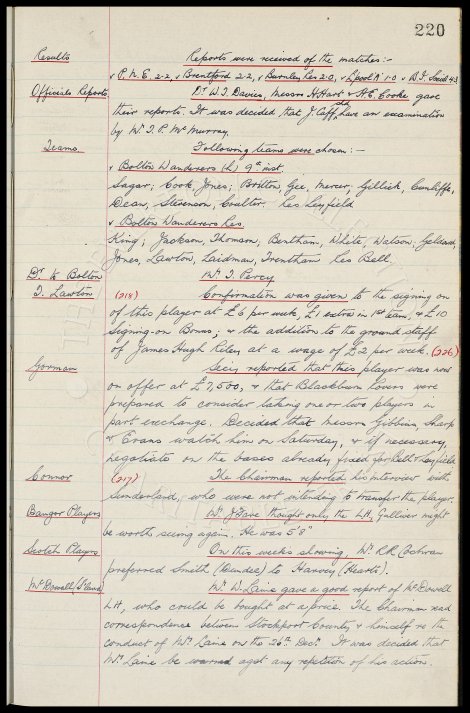 220
Results Reports were received of the matches:-
v P.N.E. 2-2, v Brentford 2-2, v Burnley Res 2-0, v L'pool 'A' 1-0 v 4-3
Officials Reports Dr W.J. Davies, Messrs H. Hart & A.E. Cooke gave
their reports. It was decided that J. Caff, have an examination
by Mr T.P. McMurray.
Teams Following teams were chosen:-
v Bolton Wanderers (h) 9th inst
Sagar; Cook, Jones; Britton, Gee, Mercer; Gillick, Cunliffe,
Dean, Stevenson, Coulter. Res Leyfield
v Bolton Wanderers Res
King; Jackson, Thomson; Bentham, White, Watson; Geldard,
Jones, Lawton, Laidman, Trentham Res Bell.
Dr to Bolton Mr T. Percy
T. Lawton (218) Confirmation was given to the signing on
of this player at £6 per week, £1 extra in 1st team, & £10
Signing-on Bonus; & the addition to the ground staff
of James Hugh Kelly at a wage of £2 per week. (226)
Gorman Secy reported that this player was now
on offer at £7,500, & that Blackburn Rovers were
prepared to consider taking one or two players in
part exchange. Decided that Messrs Gibbins, Sharp
& Evans watch him on Saturday, & if necessary,
negotiate on the bases already fixed for Bell & Leyfield
Connor (217) The Chairman reported his interview with
Sunderland, who were not intending to transfer the player.
Bangor Players Mr J. Fare thought only the LH, Gulliver might
be worth seeing again. He was 5'8"
Scotch Players On this weeks showing, Mr R.R. Cochran
preferred Smith (Dundee) to Harvey (Hearts).
McDowell Mr W. Laine gave a good report of McDowell
LH, who could be bought at a price. The Chairman read
correspondence between Stockport County & himself re the
conduct of Mr Laine on the 26th Decr. It was decided that
Mr Laine be warned agst any repetition of his action.